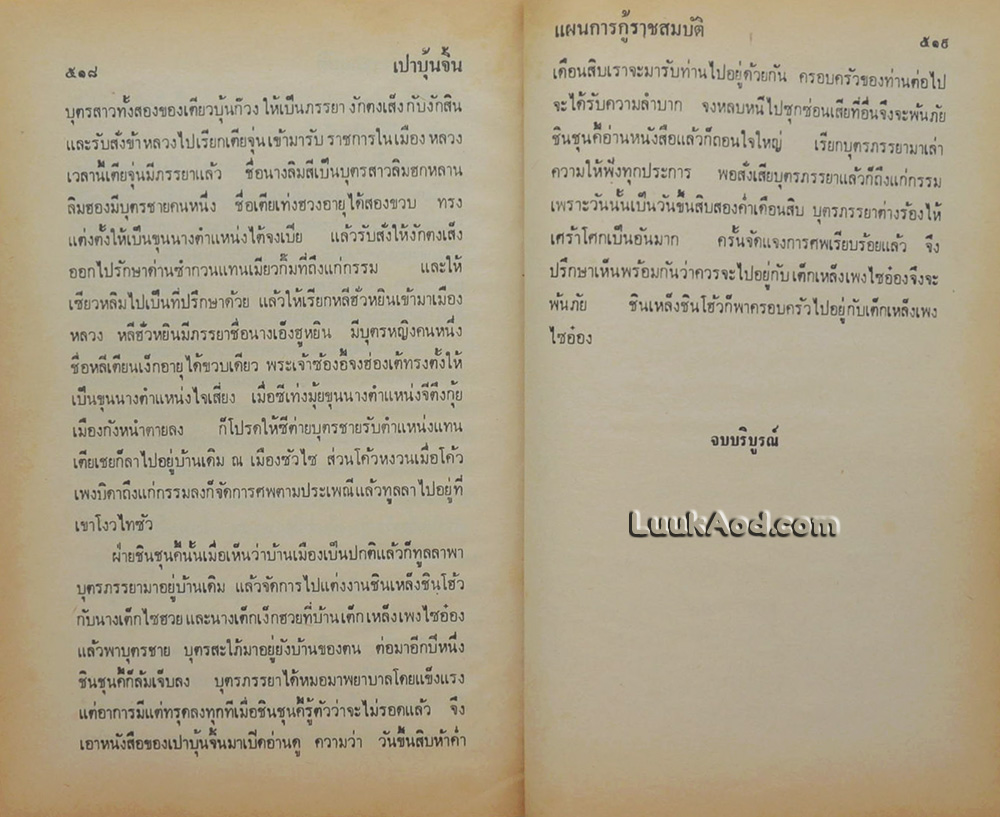 ๕๑๘
เปาบุ้นจิ้น
บุตรสาวทั้งสองของเตียวบุ้นก๊วง ให้เป็นภรรยา งักตงเส็ง กับงักสิน
และรับสั่งข้าหลวงไปเรียกเตียจุ่น เข้ามารับ ราชการใน เมือง หลวง
เวลานี้เตียจุ่นมีภรรยาแล้ว ชื่อนางลิมสีเป็นบุตรสาวลิมฮกหลาน
ลิมฮองมีบุตรชายคนหนึ่ง ชื่อเตียเท่งฮวงอายุได้สองขวบ ทรง
แต่งตั้งให้เป็นขุนนางตำแหน่งไต้จงเปีย แล้วรับสั่งให้งักตงเส็ง
ออกไปรักษาด่านซำกวนแทนเมียวกิ๊มที่ถึงแก่กรรม และให้
เซียวหลิมไปเป็นที่ปรึกษาด้วย แล้วให้เรียกหลีฮั่วหยินเข้ามาเมือง
หลวง หลีฮั่วหยินมีภรรยาชื่อนางเอ็งฮูหยิน มีบุตรหญิงคนหนึ่ง
ชื่อหลีเตียนเง็กอายุได้ขวบเดียว พระเจ้าซ้องอี้จงฮ่องเต้ทรงตั้งให้
เป็นขุนนางตำแหน่งไจเสี่ยง เมื่อซีเท่งมุ้ยขุนนางตำแหน่งจีตึงกุ้ย
เมืองกังหนำตายลง ก็โปรดให้ซีต่ายบุตรชายรับตำแหน่งแทน
เตียเชยก็ลาไปอยู่บ้านเดิม ณ เมืองซัวไซ ส่วนโค้วหงวนเมื่อโค้ว
เพงบิดาถึงแก่กรรมลงก็จัดการศพตามประเพณีแล้วทูลลาไปอยู่ที่
เขาโงวไทซัว
ฝ่ายชินชุนคี้นั้นเมื่อเห็นว่าบ้านเมืองเป็นปกติแล้วก็ทูลลาพา
บุตรภรรยามาอยู่บ้านเดิม แล้วจัดการไปแต่งงานชินเหล็งชินโฮ้ว
กับนางเต็กไซฮวย และนางเต็กเง็กฮวยที่บ้าน เต็ก เหล็ง เพง ไซอ๋อง
แล้วพาบุตรชาย บุตรสะใภ้มาอยู่ยังบ้านของตน ต่อมาอีกปีหนึ่ง
ชินชุนคี้ก็ล้มเจ็บลง บุตรภรรยาได้หมอมาพยาบาลโดยแข็งแรง
แต่อาการมีแต่ทรุดลงทุกทีเมื่อชินชุนคี้รู้ตัวว่าจะไม่รอดแล้ว จึง
เอาหนังสือของเปาบุ้นจิ้นมาเปิดอ่านดู ความว่า วันขึ้นสิบห้าค่ำ
แผนการกู้ราชสมบัติ
๕๑๙
เดือนสิบเราจะมารับท่านไปอยู่ด้วยกัน ครอบครัวของท่านต่อไป
จะได้รับความลำบาก จงหลบหนีไปซุกซ่อนเสียที่อื่นจึงจะพ้นภัย
ชินชุนคี้อ่านหนังสือแล้วก็ถอนใจใหญ่ เรียกบุตรภรรยามาเล่า
ความให้ฟังทุกประการ พอสั่งเสียบุตรภรรยาแล้วก็ถึงแก่กรรม
เพราะวันนั้นเป็นวันขึ้นสิบสองค่ำเดือนสิบ บุตรภรรยาต่างร้องไห้
เศร้าโศกเป็นอันมาก ครั้นจัดแจงการศพเรียบร้อยแล้ว จึง
ปรึกษาเห็นพร้อมกันว่าควรจะไปอยู่กับ เต็กเหล็งเพงไซอ๋องจึงจะ
พ้นภัย ชินเหล็งชินโฮ้วก็พาครอบครัวไปอยู่กับเต็กเหล็งเพง
ไซอ๋อง
จบบริบูรณ์
LuukAod.com